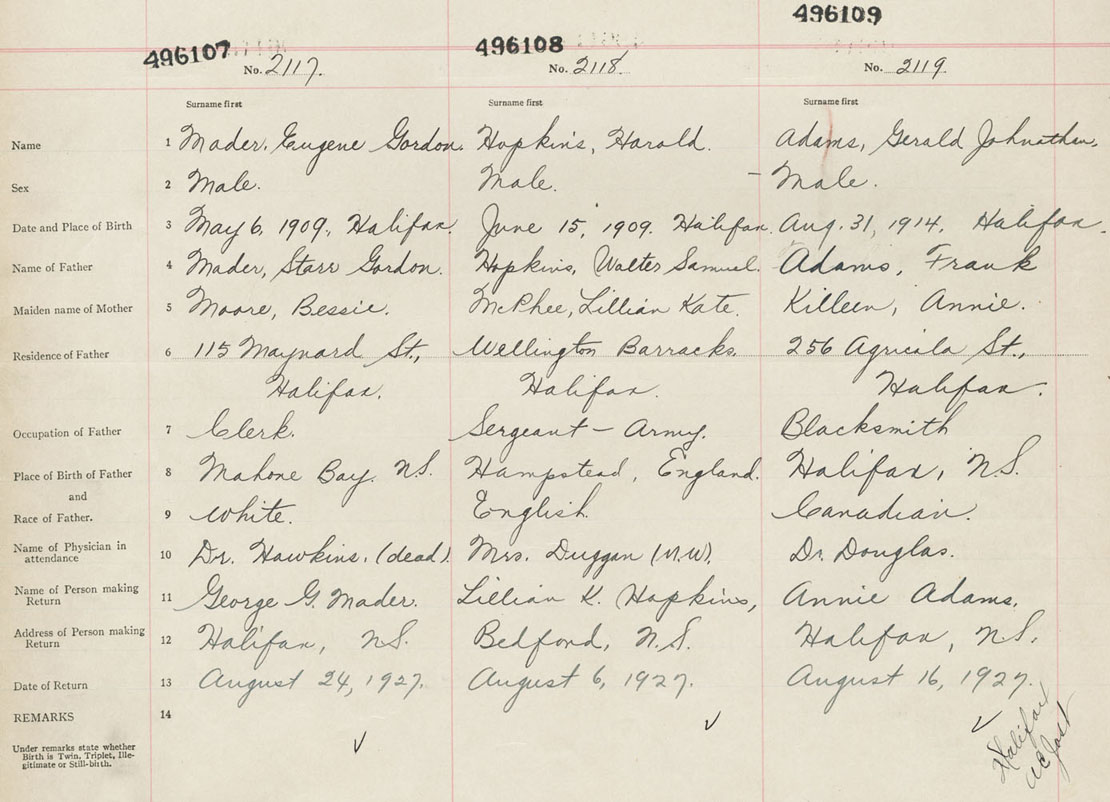 496107 496108 496109
No. 2117. No. 2118. No. 2119
Surname first Surname first Surname first
Name 1 Mader, Eugene Gordon. Hopkins, Harold. Adams, Gerald Johnathan,
Sex 2 Male. Male. – Male.
Date and Place of Birth 3 May 6, 1909, Halifax. June 15, 1909. Halifax. Aug. 31, 1914, Halifax.
Name of Father 4 Mader, Starr Gordon. Hopkins, Walter Samuel. Adams, Frank
Maiden name of Mother 5 Moore, Bessie. McPhee, Lillian Kate. Killeen, Annie.
Residence of Father 6 115 Maynard St., Wellington Barracks. 256 Agricola St.,
Halifax. Halifax. Halifax.
Occupation of Father 7 Clerk. Sergeant – Army. Blacksmith
Place of Birth of Father 8 Mahone Bay. N.S. Hampstead, England. Halifax, N.S.
and
Race of Father. 9 White. English. Canadian.
Name of Physician in attendance 10 Dr. Hawkins. (dead). Mrs. Duggan (M.W). Dr. Douglas.
Name of Person making Return 11 George G. Mader. Lillian K. Hopkins, Annie Adams.
Address of Person making Return 12 Halifax, N.S. Bedford, N.S. Halifax, N.S.
Date of Return 13 August 24, 1927. August 6, 1927. August 16, 1927.
REMARKS 14
Under remarks state whether
Birth is Twin, Triplet, Ille-
gitimate or Still-birth.
Halifax
AC Jost